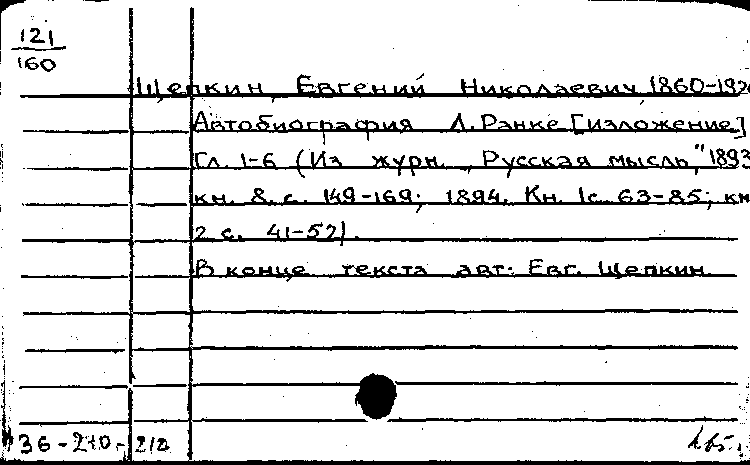 121
160
Щепкин, Евгений Николаевич, 1860-192
Автобиография Л. Ранке [изложение]
Гл. 1-6 (Из журн. „Русская мысль," 1893
кн. 8. с. 149-169; 1894. Кн. 1с. 63-85; кн
2 с. 41-52).
В конце текста авт: Евг. Щепкин
36-2